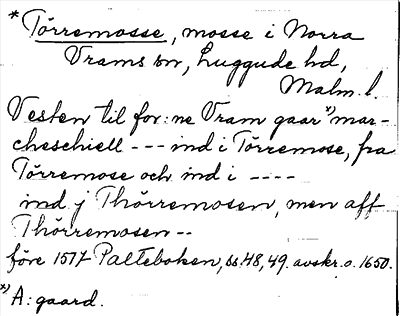 * Törremosse, mosse i Norra
Vrams sn, Luggude hd,
Malm. l.
Vesten til for: ne Vram gaar *) mar-
cheschiell --- ind i Törremose, fra
Törremose och ind i ----
ind j Thörremosen, men aff
Thörremosen --
före 1517 Palteboken, ss. 48, 49. avskr. o. 1650.
*) A: gaard.